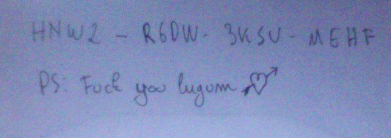 HNWZ - R6DW - 3KSU - MEHF
PS: Fuck you lugum